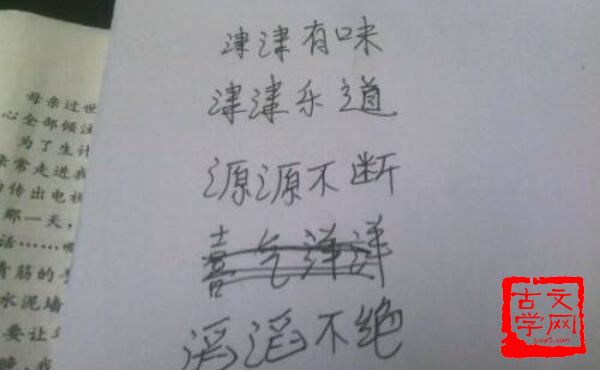 母亲过世
心全部倾注
为了生计
亲常走进我
传出电视
那一天，
话……
青筋的手
水泥墙
要让
晚，我
津津有味
津津乐道
源源不断
喜气洋洋
滔滔不绝
古文
学网